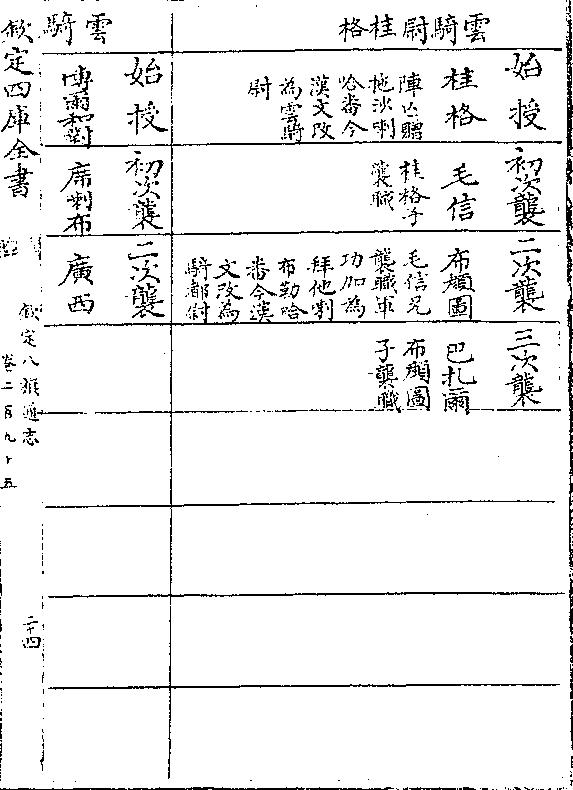 雲騎尉桂格
始授
桂格
陣亡贈
拖沙喇
哈番今
漢文改
為雲騎
尉
初次襲
毛信
桂格子
襲職
二次襲
毛信兄
襲職軍
功加為
拜他喇
布勒哈
番今漢
文改為
騎都尉
三次襲
巴扎爾
子襲職
雲騎
始授
博爾和對
初次襲
席喇布
二次襲
廣西
欽定四庫全書
欽定八旗通志
卷二百九十五
二十四